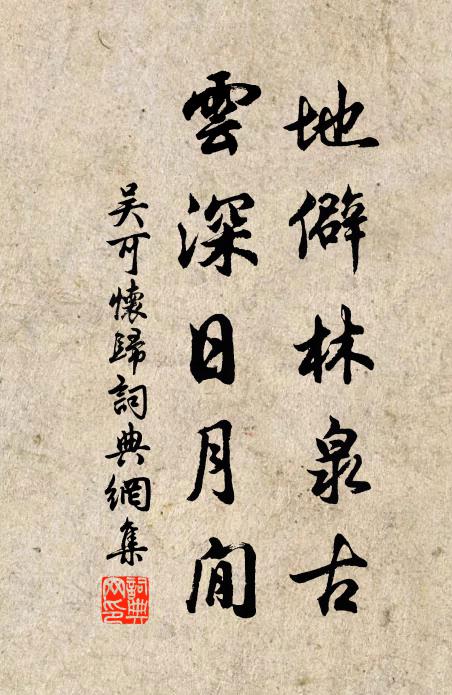 地僻林泉古
雲深日月閒
吴可懷歸詞典網集
詞典網印